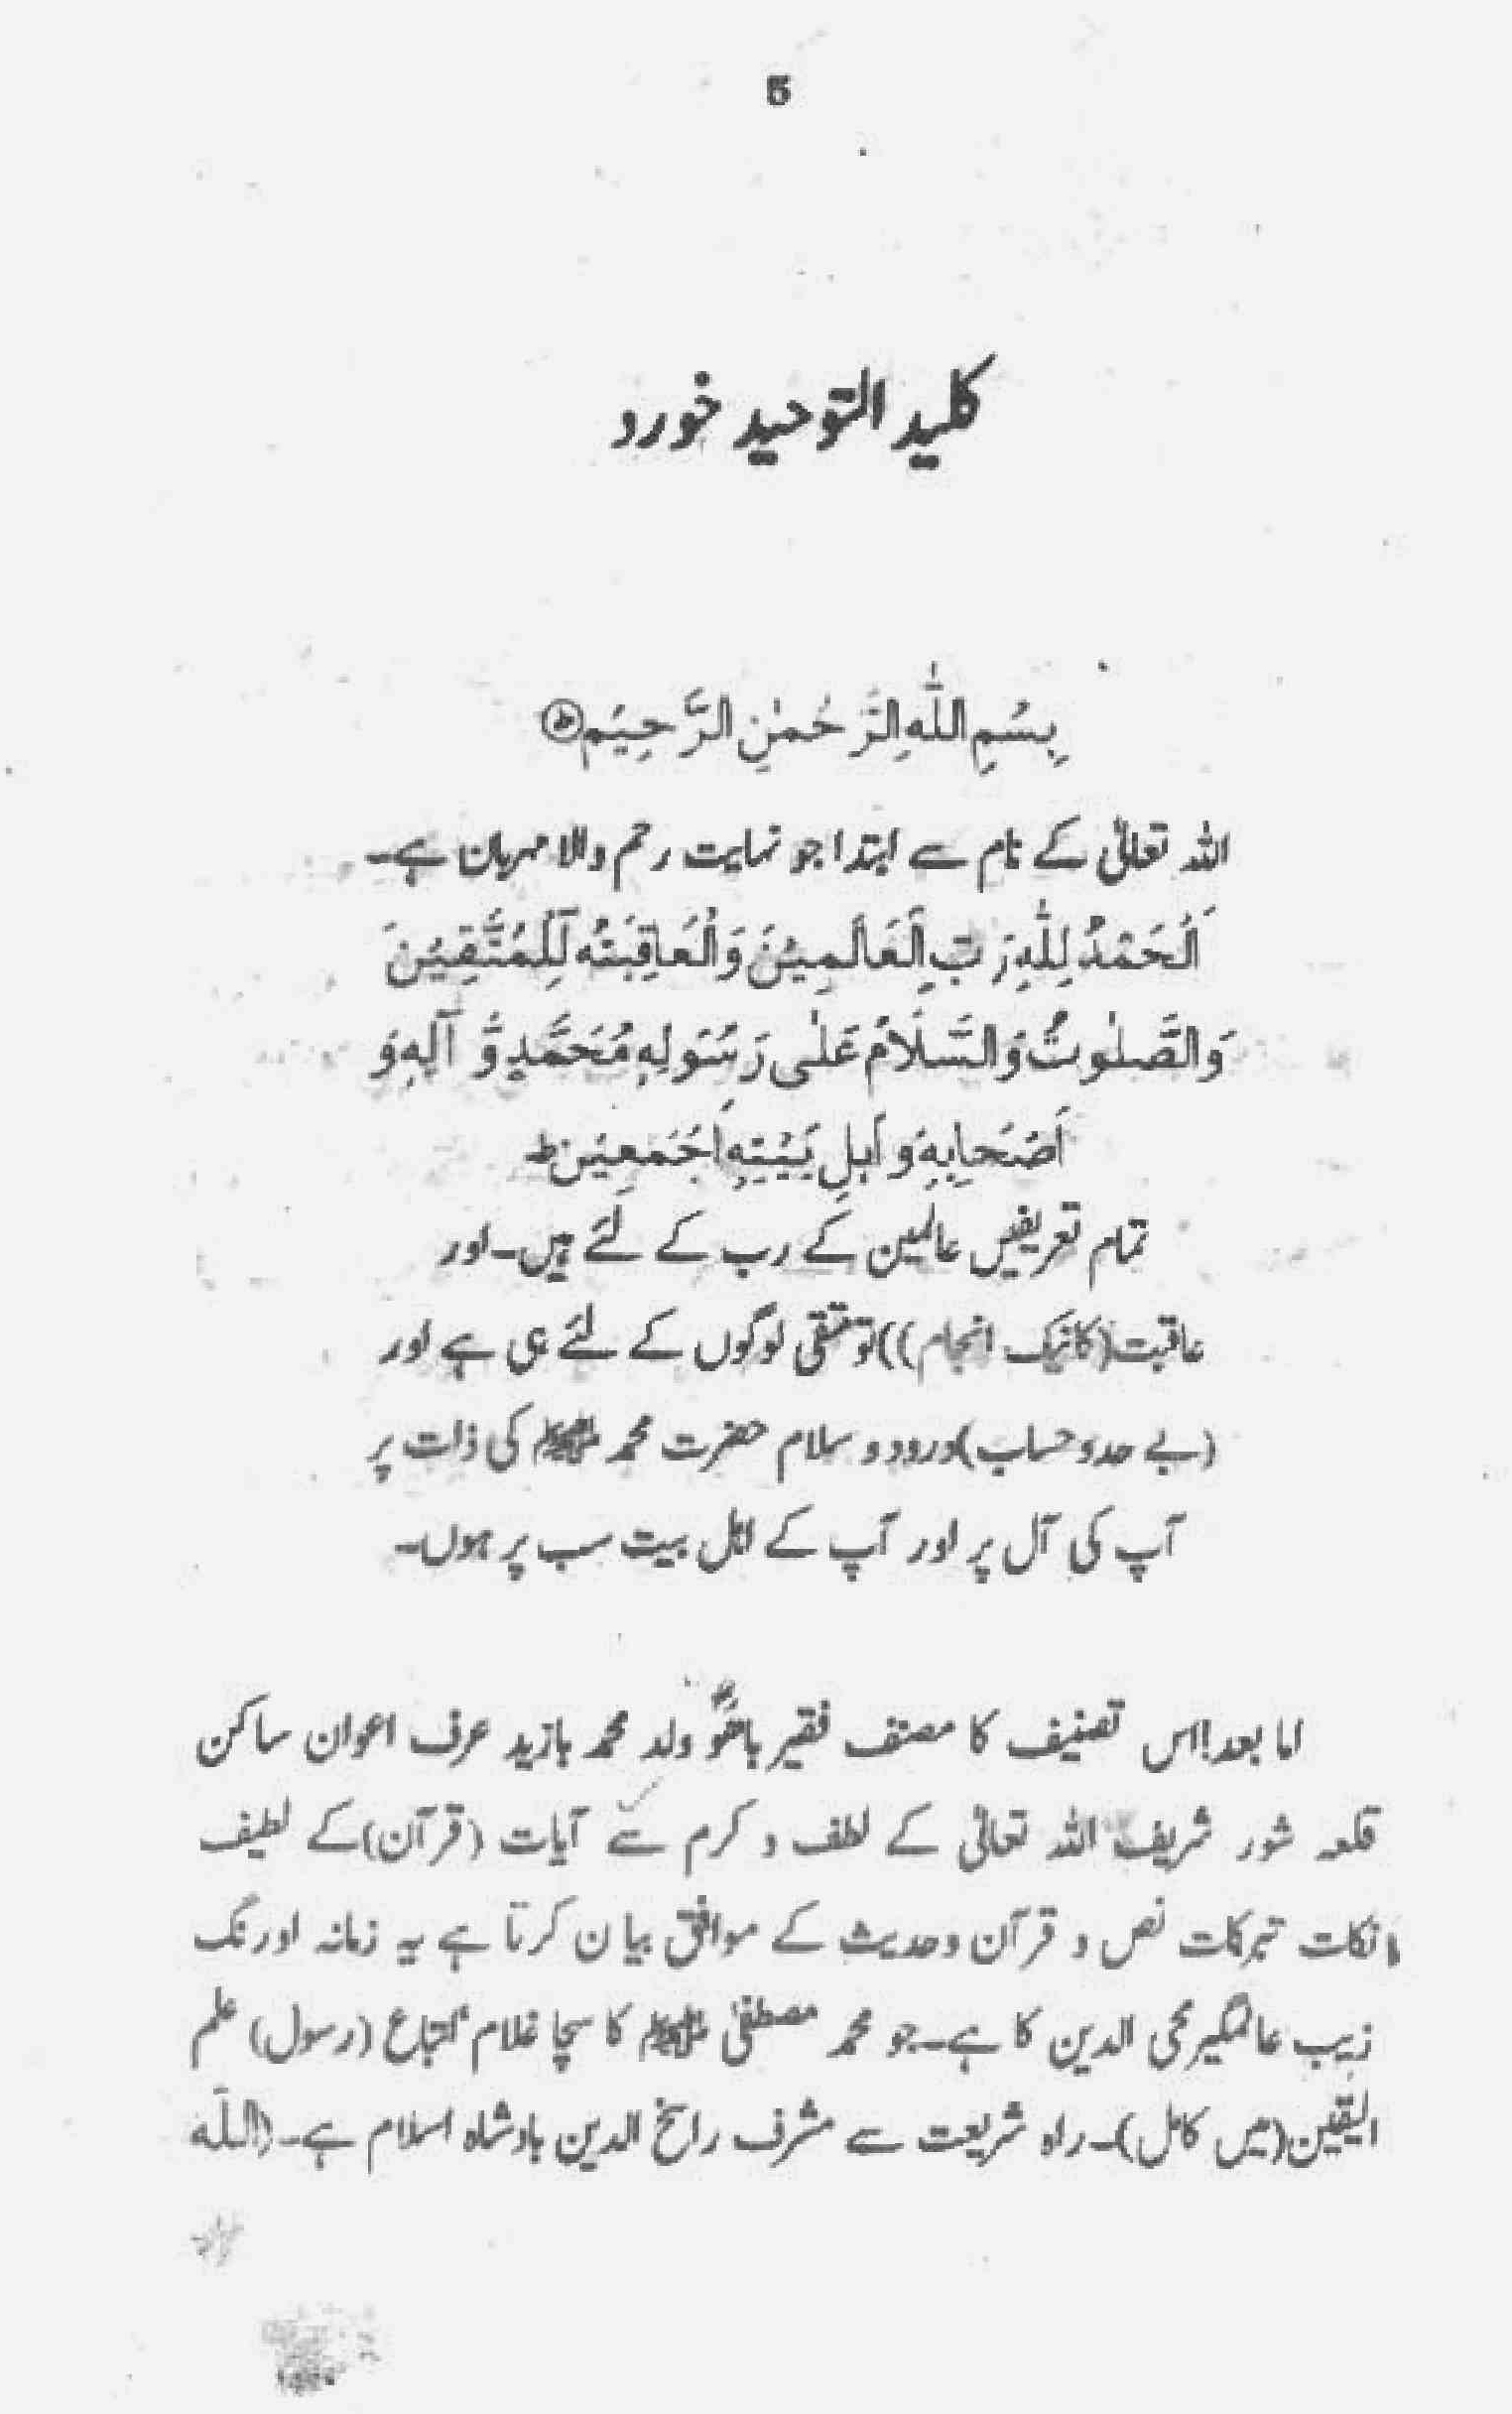 5
کلید التوحید خورد
بِسْمِ اللّٰهِ الرَّحْمٰنِ الرَّحِيْمِ ط
اللہ تعالیٰ کے نام سے ابتدا جو نہایت رحم والا مہربان ہے۔
اَلْحَمْدُ لِلّٰهِ رَبِّ الْعَالَمِيْنَ وَالْعَاقِبَتُه لِلْمُتَّقِيْنَ
وَالصَّلٰوتُ وَالسَّلَامُ عَلٰى رَسُوْلِهٖ مُحَمَّدٍ وَّ آلِهٖ وَ
اَصْحَابِهٖ وَ اَہلِ بَيْتِهٖ اَجْمَعِيْن ط
تمام تعریفیں عالمین کے رب کے لئے ہیں۔ اور
عاقبت (کا نیک انجام)) تو متقی لوگوں کے لئے ہی ہے اور
(بے حد و حساب) درود و سلام حضرت محمد ﷺ کی ذات پر
آپ کی آل پر اور آپ کے اہل بیت سب پر ہوں۔
اما بعد! اس تصنیف کا مصنف فقیر باھُوؒ ولد محمد بازید عرف اعوان ساکن
قلعہ شور شریف اللہ تعالیٰ کے لطف و کرم سے آیات (قرآن) کے لطیف
نکات تبرکات نص و قرآن و حدیث کے موافق بیان کرتا ہے یہ زمانہ اورنگ
زیب عالمگیر محی الدین کا ہے۔ جو محمد مصطفیٰ ﷺ کا سچا غلام اتباع (رسول) علم
الیقین (میں کامل)۔ راہ شریعت سے مشرف راسخ الدین بادشاہ اسلام ہے۔ (اللّٰه